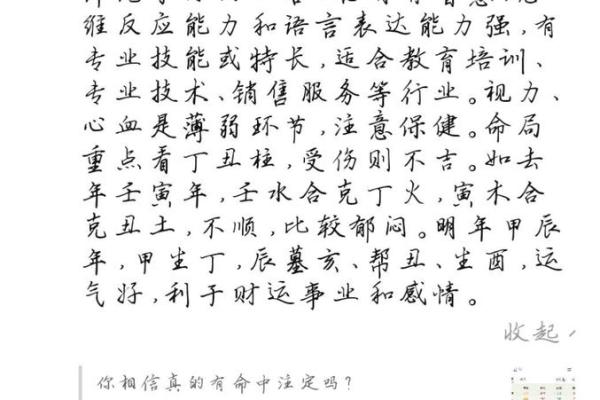 维反应能力和语言表达能力强,有
专业技能或特长,适合教育培训、
专业技术、销售服务等行业。视力、
心血是薄弱环节,注意保健。命局
重点看丁丑柱,受伤则不吉。如去
年壬寅年,壬水合克丁火,寅木合
克丑土,不顺,比较郁闷。明年甲辰
年,甲生丁,辰墓亥、帮丑、生酉,运
气好,利于财运事业和感情。
收起
你相信真的有命中注定吗?